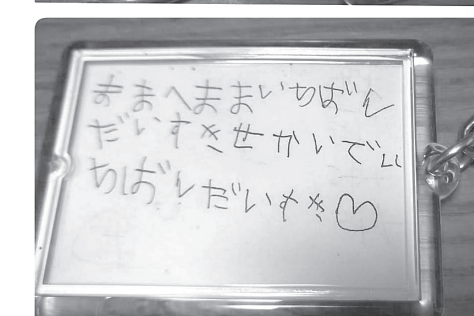 ままへままいちばん
だいすきせかいでい
ちばんだいすき♡